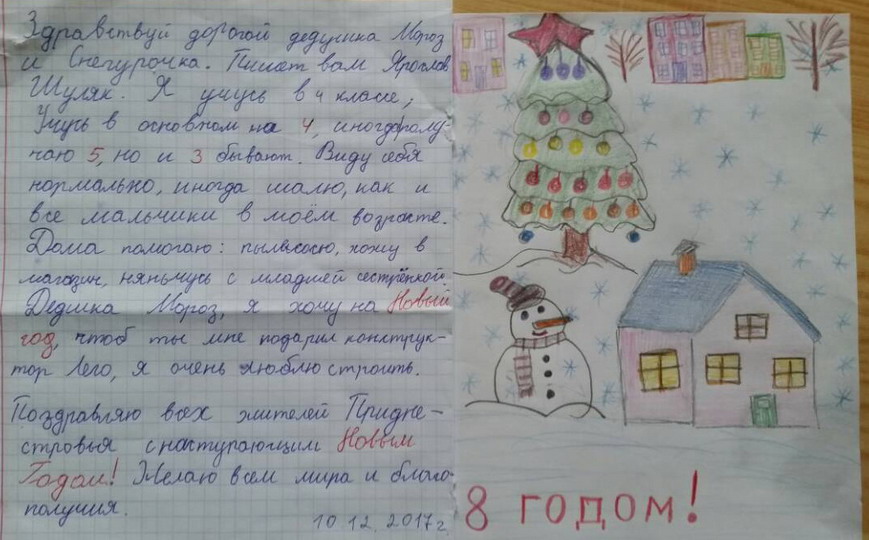 Здравствуй дорогой дедушка Мороз
и Снегурочка. Пишет вам Ярослав
Шуляк. Я учусь в 4 классе,
Учусь в основном на 4, иногда полу-
чаю 5, но и 3 бывают. Виду себя
нормально, иногда шалю, как и
все мальчики в моём возрасте.
Дома помогаю: пылесосю, хожу в
магазин, няньчусь с младшей сестрёнкой.
Дедшка Мороз, я хочу на Новый
год, чтоб ты мне подарил конструк-
тор Лего, я очень люблю строить.
Поздравляю всех жителей Придне-
стровья с наступающим Новым
Годом! Желаю всем мира и благо-
получия.
10.12.2017г.
8 годом!